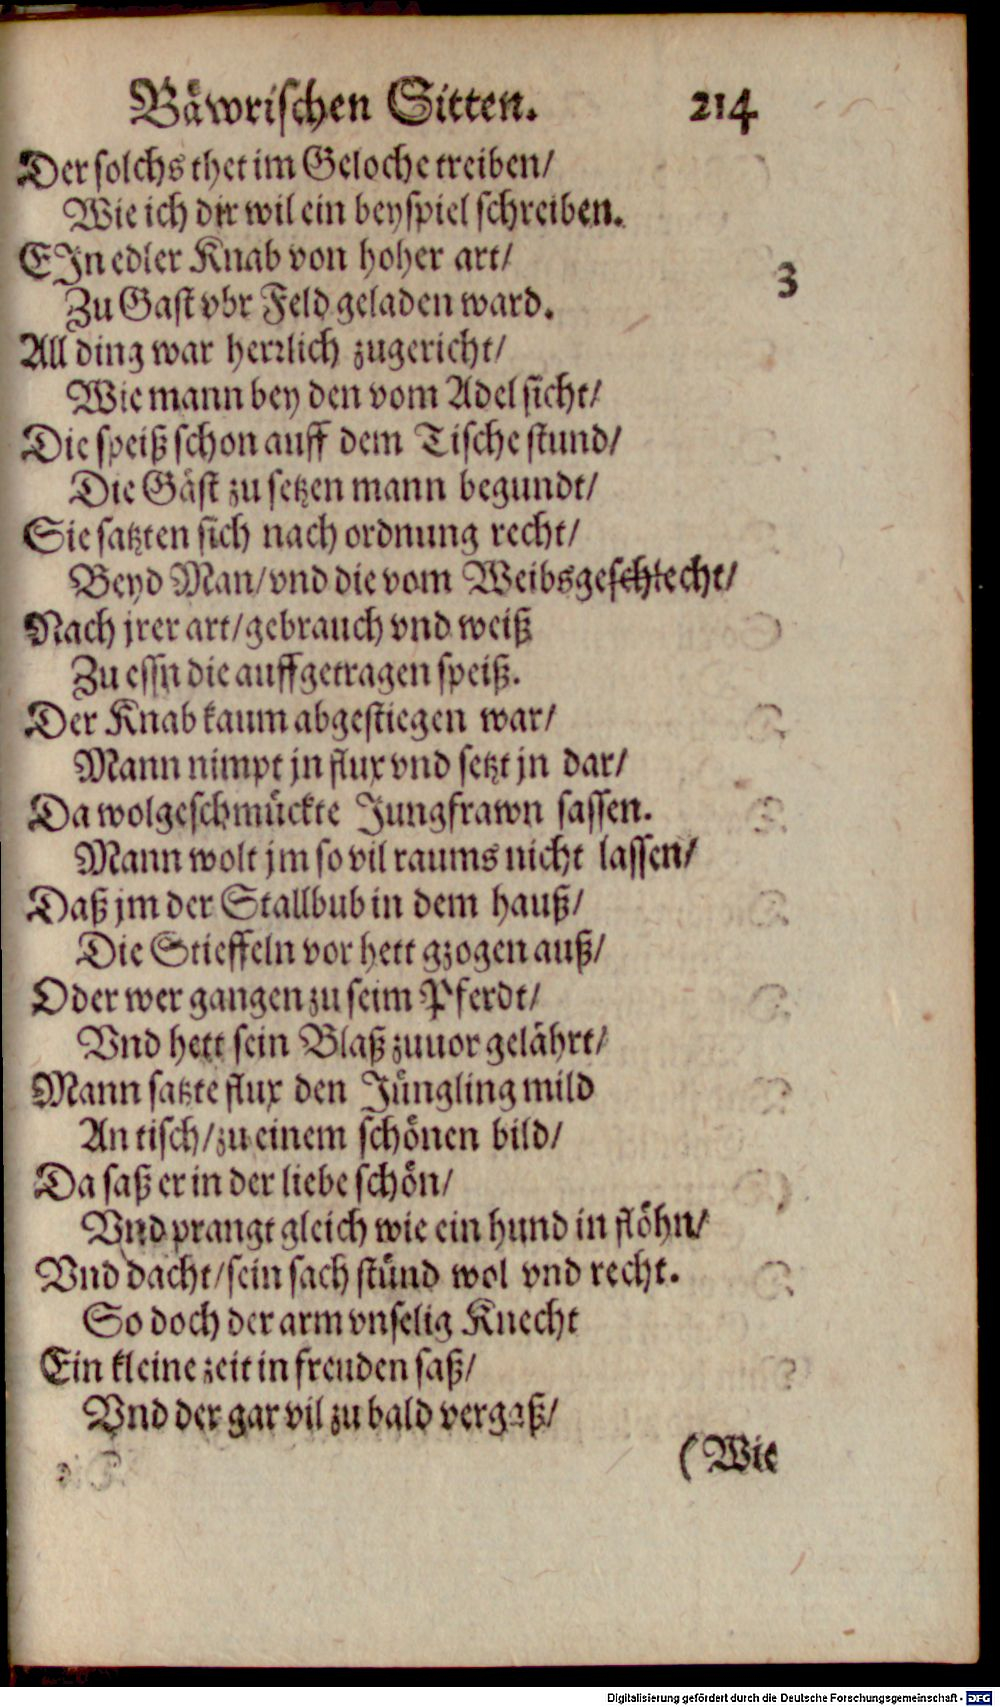 Bäwrischen Sitten. 214
Der solchs thet im Geloche treiben/
Wie ich dir wil ein beyspiel schreiben.
EJn edler Knab von hoher art/
3
Zu Gast vbr Feld geladen ward.
All ding war herrlich zugericht/
Wie mann bey den vom Adel sicht/
Die speiß schon auff dem Tische stund/
Die Gäst zu setzen mann begundt/
Sie satzten sich nach ordnung recht/
Beyd Man/vnd die vom Weibsgeschlecht/
Nach jrer art/gebrauch vnd weiß
Zu essn die auffgetragen speiß.
Der Knab kaum abgestiegen war/
Mann nimpt jn flux vnd setzt jn dar/
Da wolgeschmückte Jungfrawn sassen.
Mann wolt jm so vil raums nicht lassen/
Daß jm der Stallbub in dem hauß/
Die Stieffeln vor hett gzogen auß/
Oder wer gangen zu seim Pferdt/
Vnd hett sein Blaß zuuor gelährt/
Mann satzte flux den Jüngling mild
An tisch/zu einem schönen bild/
Da saß er in der liebe schön/
Vnd prangt gleich wie ein hund in flöhn/
Vnd dacht/sein sach stünd wol vnd recht.
So doch der arm vnselig Knecht
Ein kleine zeit in freuden saß/
Vnd der gar vil zu bald vergaß/
(Wie
Digitalisierung gefördert durch die Deutsche Forschungsgemeinschaft - DFG